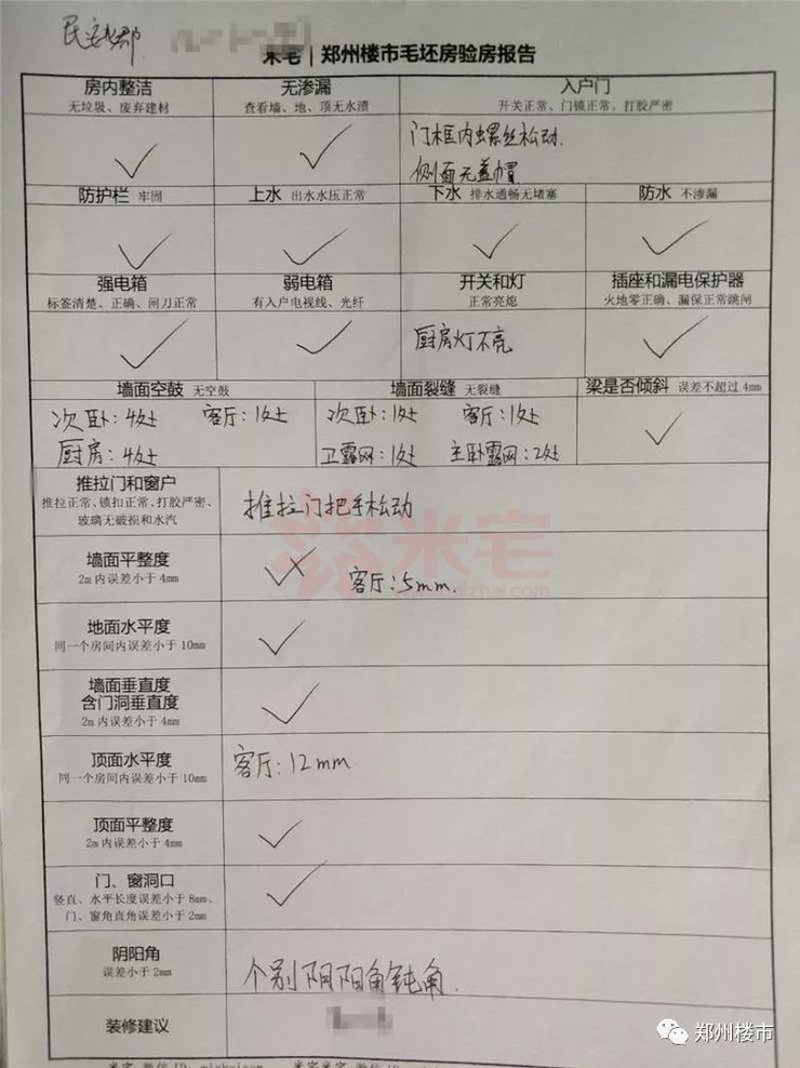 民安北郡
米宅 | 郑州楼市毛坯房验房报告
房内整洁
无垃圾、废弃建材
无渗漏
查看墙、地、顶无水渍
入户门
开关正常、门锁正常、打胶严密
门框内螺丝松动.
侧面无盖帽
防护栏 牢固
上水 出水水压正常
下水 排水通畅无堵塞
防水 不渗漏
强电箱
标签清楚、正确、闸刀正常
弱电箱
有入户电视线、光纤
开关和灯
正常亮熄
插座和漏电保护器
火地零正确、漏保正常跳闸
厨房灯不亮
墙面空鼓 无空鼓
墙面裂缝 无裂缝
梁是否倾斜 误差不超过4mm
次卧:4处 客厅:1处
厨房:4处
次卧:1处 客厅:1处
卫露网:1处 主卧露网:2处
推拉门和窗户
推拉正常、锁扣正常、打胶严密、
玻璃无破损和水汽
推拉门把手松动
墙面平整度
2m内误差小于4mm
客厅:5mm.
米宅
地面水平度
同一个房间内误差小于10mm
墙面垂直度
含门洞垂直度
2m内误差小于4mm
顶面水平度
同一个房间内误差小于10mm
客厅:12mm
顶面平整度
2m内误差小于4mm
门、窗洞口
竖直、水平长度误差小于8mm、
门、窗角直角误差小于2mm
阴阳角
误差小于2mm
个别阴阳角钝角.
装修建议
郑州楼市